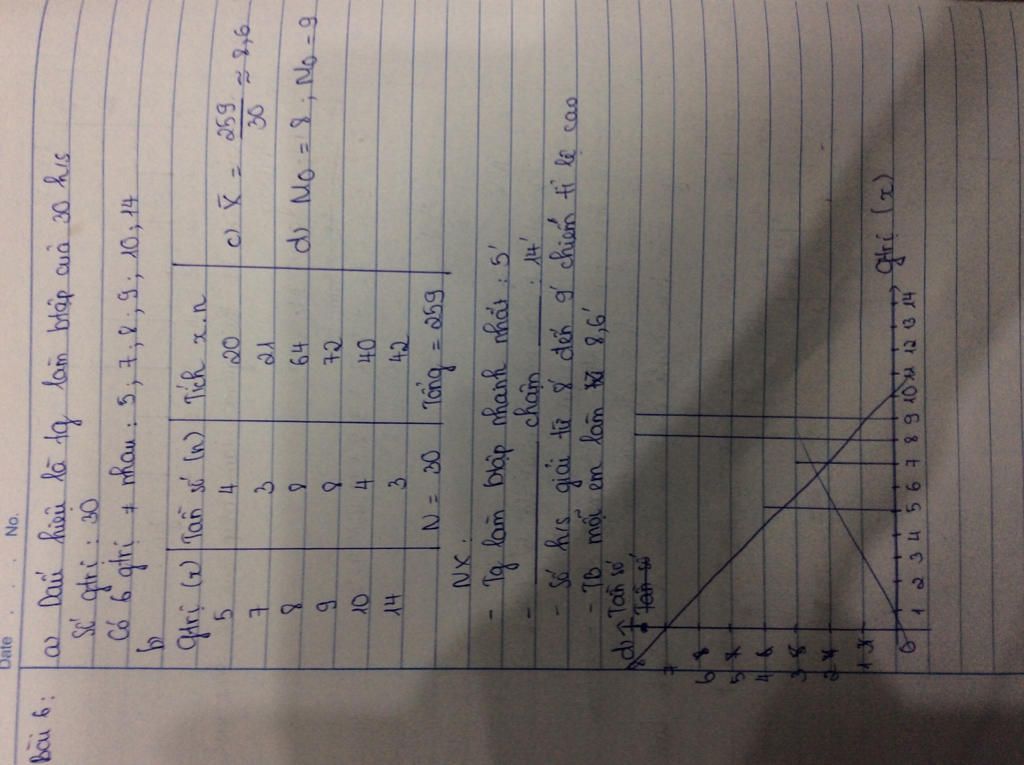 Date . . . No.
Bài 6:
a) Dấu hiệu là tg làm btập của 30 h/s
Số gtrị : 30
Có 6 gtrị ≠ nhau : 5 ; 7 ; 8 ; 9 ; 10 ; 14
b)
Gtrị (x) Tần số (n) Tích x.n
5 4 20
7 3 21
8 8 64
9 8 72
10 4 40
14 3 42
N = 30 Tổng = 259
c) X̄ = 259/30 ≈ 8,6
d) M0 = 8 ; M0 = 9
NX :
- Tg làm btập nhanh nhất : 5'
- ——— chậm —— : 14'
- Số h/s giải từ 8' đến 9' chiếm tỉ lệ cao
- TB mỗi em làm 8,6'
d) Tần số
Tần số
8
7
6 8
5 7
4 6
3 8
2
1
0 1 2 3 4 5 6 7 8 9 10 11 12 13 14 gtrị (x)